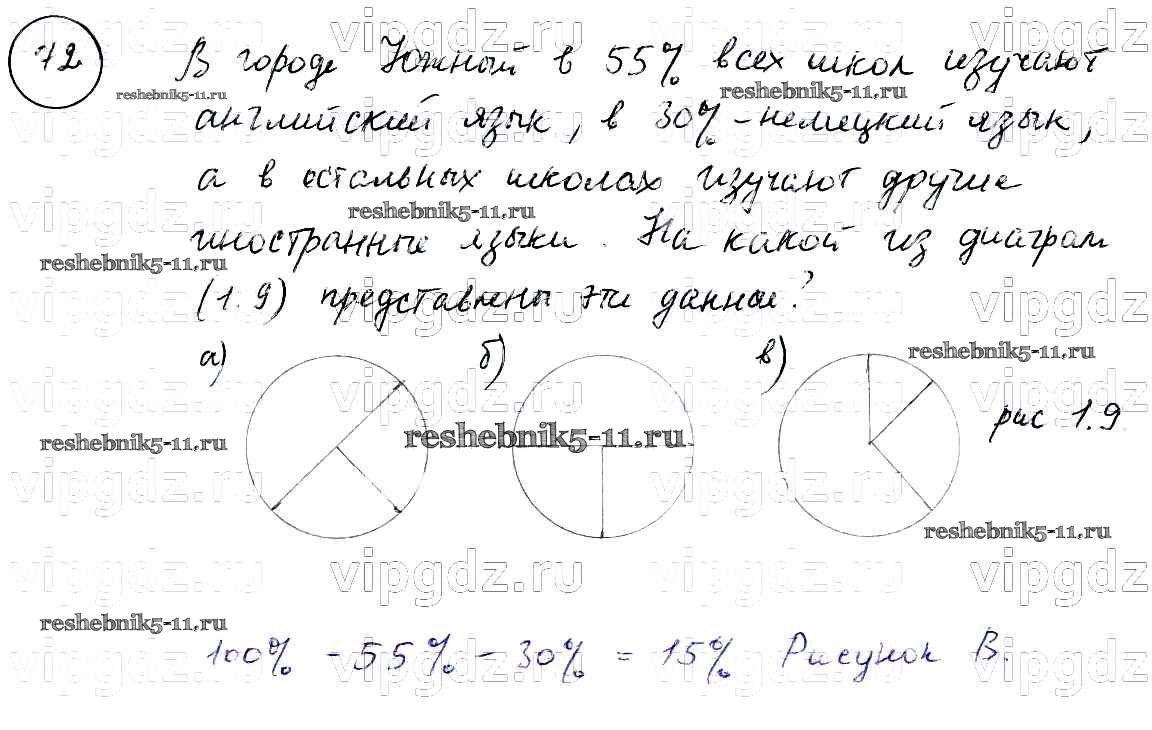 72 В городе Южный в 55% всех школ изучают
английский язык, в 30% - немецкий язык,
а в остальных школах изучают другие
иностранные языки. На какой из диаграм
(1.9) представлены эти данные?
а) б) в)
рис 1.9
100% - 55% - 30% = 15% Рисунок В.
vipgdz.ru
reshebnik5-11.ru